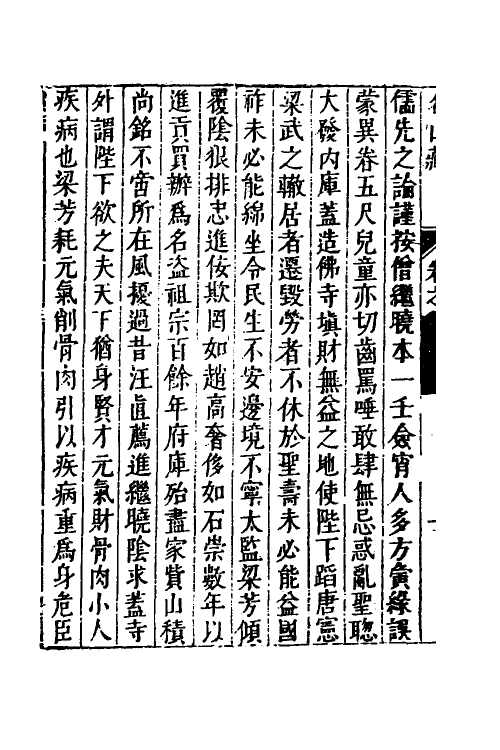 儒先之論謹按僧繼曉本一壬僉宵人多方夤緣誤
蒙異眷五尺兒童亦切齒罵唾敢肆無忌惑亂聖聦
大發内庫蓋造佛寺塡財無益之地使陛下蹈唐憲
梁武之轍居者遷毀勞者不休於聖壽未必能益國
祚未必能綿坐令民生不安邊境不寧太監梁芳傾
覆陰狠排忠進佞欺罔如趙高奢侈如石崇數年以
進貢買辦爲名盗祖宗百餘年府庫殆盡家貲山積
尚銘不啻所在風擾過昔汪直薦進繼曉陰求蓋寺
外謂陛下欲之夫天下猶身賢才元氣財骨肉小人
疾病也梁芳耗元氣削骨肉引以疾病重爲身危臣